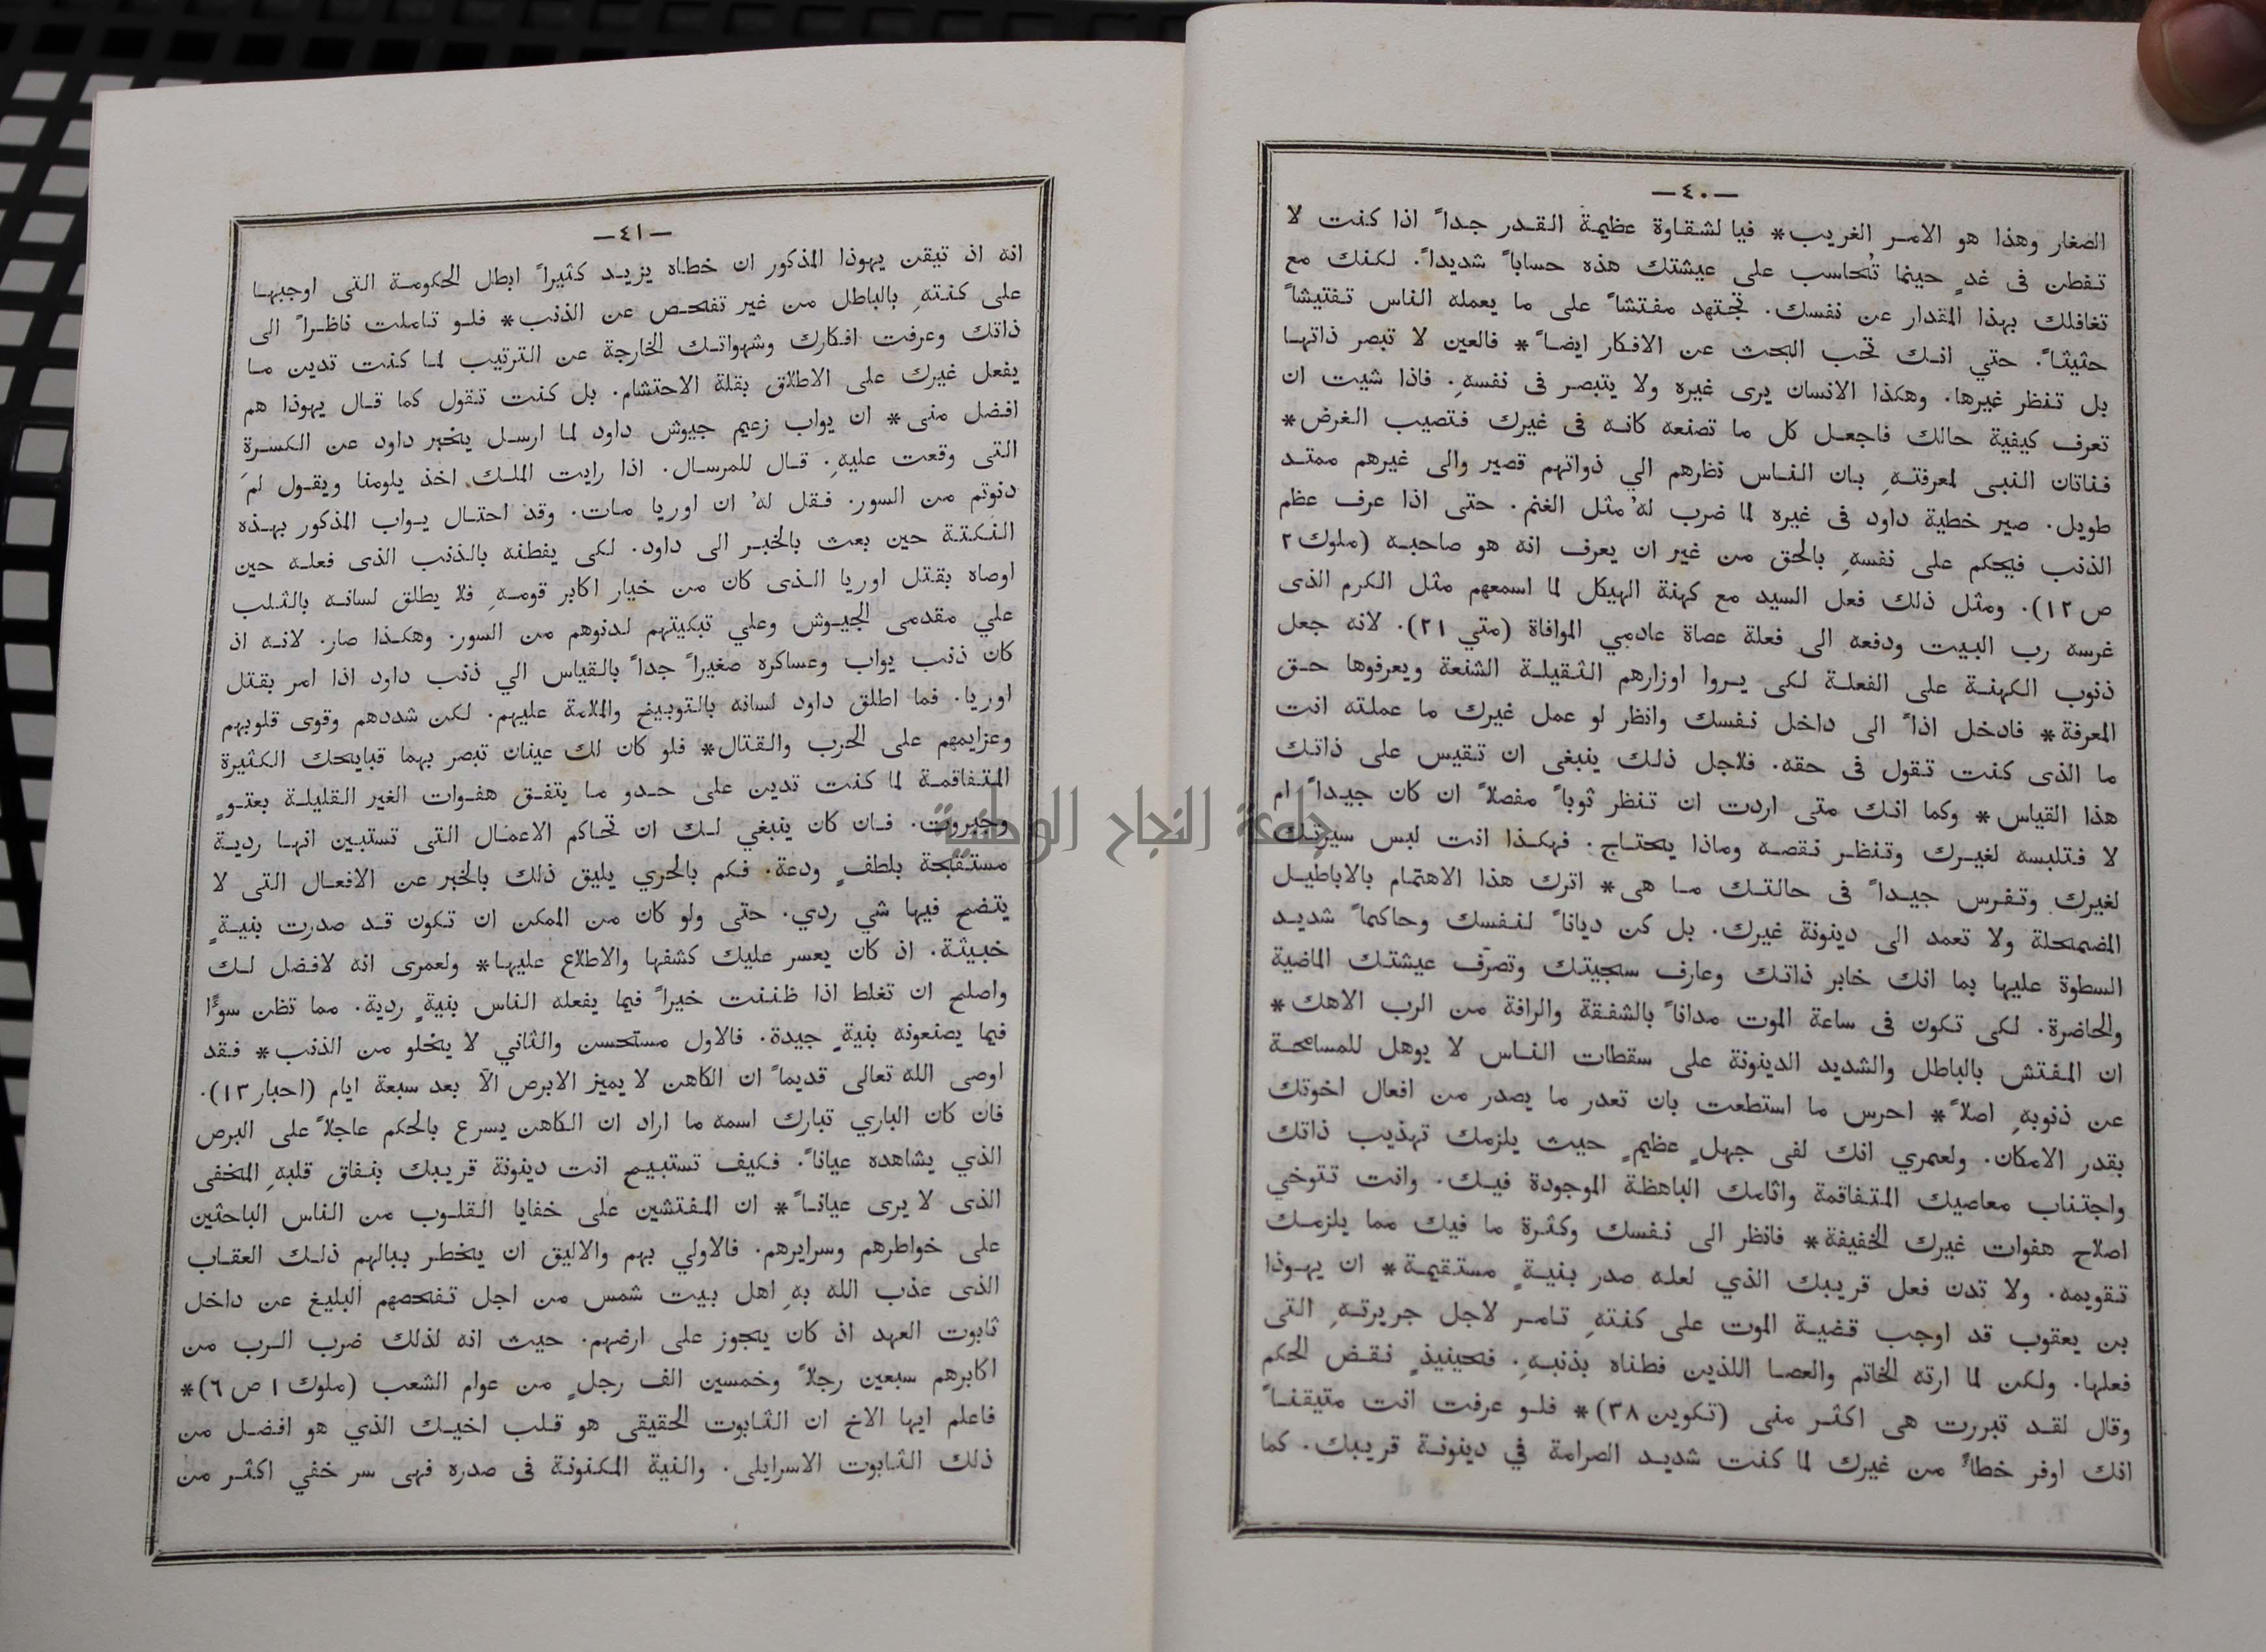 —٤٠—
الصغار وهذا هو الامر الغريب* فيا لشقاوة عظيمة القدر جداً اذا كنت لا
تفطن فى غدٍ حينما تُحاسب على عيشتك هذه حساباً شديداً. لكنك مع
تغافلك بهذا المقدار عن نفسك. تجتهد مفتشاً على ما يعمله الناس تفتيشاً
حثيثاً. حتي انك تحب البحث عن الافكار ايضاً* فالعين لا تبصر ذاتها
بل تنظر غيرها. وهكذا الانسان يرى غيره ولا يتبصر فى نفسهِ. فاذا شيت ان
تعرف كيفية حالك فاجعل كل ما تصنعه كانه فى غيرك فتصيب الغرض*
فناتان النبى لمعرفتهِ بان الناس نظرهم الي ذواتهم قصير والى غيرهم ممتد
طويل. صير خطية داود فى غيره لما ضرب لهُ مثل الغنم. حتى اذا عرف عظم
الذنب فيحكم على نفسهِ بالحق من غير ان يعرف انه هو صاحبه (ملوك ٢
ص ١٢). ومثل ذلك فعل السيد مع كهنة الهيكل لما اسمعهم مثل الكرم الذى
غرسه رب البيت ودفعه الى فعلة عصاة عادمي الموافاة (متي ٢١). لانه جعل
ذنوب الكهنة على الفعلة لكى يروا اوزارهم الثقيلة الشنعة ويعرفوها حق
المعرفة* فادخل اذاً الى داخل نفسك وانظر لو عمل غيرك ما عملته انت
ما الذى كنت تقول فى حقه. فلاجل ذلك ينبغى ان تقيس على ذاتك
هذا القياس* وكما انك متى اردت ان تنظر ثوباً مفصلاً ان كان جيداً ام
لا فتلبسه لغيرك وتنظر نقصه وماذا يحتاج. فهكذا انت لبس سيرتك
لغيرك وتفرس جيداً فى حالتك ما هى* اترك هذا الاهتمام بالاباطيل
المضمحلة ولا تعمد الى دينونة غيرك. بل كن دياناً لنفسك وحاكماً شديد
السطوة عليها بما انك خابر ذاتك وعارف سجيتك وتصرّف عيشتك الماضية
والحاضرة. لكى تكون فى ساعة الموت مداناً بالشفقة والرافة من الرب الاهك*
ان المفتش بالباطل والشديد الدينونة على سقطات الناس لا يوهل للمسامحة
عن ذنوبهِ اصلاً* احرس ما استطعت بان تعدر ما يصدر من افعال اخوتك
بقدر الامكان. ولعمري انك لفى جهلٍ عظيمٍ حيث يلزمك تهذيب ذاتك
واجتناب معاصيك المتفاقمة واثامك الباهظة الموجودة فيك. وانت تتوخي
اصلاح هفوات غيرك الخفيفة* فانظر الى نفسك وكثرة ما فيك مما يلزمك
تقويمه. ولا تدن فعل قريبك الذي لعله صدر بنيةٍ مستقيمة* ان يهوذا
بن يعقوب قد اوجب قضية الموت على كنتهِ تامر لاجل جريرتهِ التى
فعلها. ولكن لما ارته الخاتم والعصا اللذين فطناه بذنبهِ. فحينيذٍ نقض الحكم
وقال لقد تبررت هى اكثر منى (تكوين ٣٨)* فلو عرفت انت متيقناً
انك اوفر خطاً من غيرك لما كنت شديد الصرامة في دينونة قريبك. كما
—٤١—
انه اذ تيقن يهوذا المذكور ان خطاه يزيد كثيراً ابطل الحكومة التى اوجبها
على كنتهِ بالباطل من غير تفحص عن الذنب* فلو تاملت ناظراً الى
ذاتك وعرفت افكارك وشهواتك الخارجة عن الترتيب لما كنت تدين ما
يفعل غيرك على الاطلاق بقلة الاحتشام. بل كنت تقول كما قال يهوذا هم
افضل منى* ان يواب زعيم جيوش داود لما ارسل يخبر داود عن الكسرةِ
التى وقعت عليهِ. قال للمرسال. اذا رايت الملك اخذ يلومنا ويقول لم
دنوتم من السور. فقل لهُ ان اوريا مات. وقد احتال يواب المذكور بهذه
النكتة حين بعث بالخبر الى داود. لكى يفطنه بالذنب الذى فعله حين
اوصاه بقتل اوريا الذى كان من خيار اكابر قومهِ فلا يطلق لسانه بالثلب
علي مقدمى الجيوش وعلي تبكيتهم لدنوهم من السور. وهكذا صار. لانه اذ
كان ذنب يواب وعساكره صغيراً جداً بالقياس الي ذنب داود اذا امر بقتل
اوريا. فما اطلق داود لسانه بالتوبيخ والملامة عليهم. لكن شددهم وقوى قلوبهم
وعزايمهم على الحرب والقتال* فلو كان لك عينان تبصر بهما قبايحك الكثيرة
المتفاقمة لما كنت تدين على حدو ما يتفق هفوات الغير القليلة بعتوٍ
وجبروت. فان كان ينبغي لك ان تحاكم الاعمال التى تستبين انها ردية
مستقبحة بلطفٍ ودعة. فكم بالحري يليق ذلك بالخبر عن الافعال التى لا
يتضح فيها شي ردي. حتى ولو كان من الممكن ان تكون قد صدرت بنيةٍ
خبيثة. اذ كان يعسر عليك كشفها والاطلاع عليها* ولعمرى انه لافضل لك
واصلح ان تغلط اذا ظننت خيراً فيما يفعله الناس بنيةٍ ردية. مما تظن سوًا
فيما يصنعونه بنيةٍ جيدة. فالاول مستحسن والثاني لا يخلو من الذنب* فقد
اوصى الله تعالى قديماً ان الكاهن لا يميز الابرص الآ بعد سبعة ايام (احبار ١٣).
فان كان الباري تبارك اسمه ما اراد ان الكاهن يسرع بالحكم عاجلاً على البرص
الذي يشاهده عياناً. فكيف تستبيح انت دينونة قريبك بنفاق قلبهِ المخفى
الذى لا يرى عياناً* ان المفتشين على خفايا القلوب من الناس الباحثين
على خواطرهم وسرايرهم. فالاولي بهم والاليق ان يخطر ببالهم ذلك العقاب
الذى عذب الله بهِ اهل بيت شمس من اجل تفحصهم البليغ عن داخل
تابوت العهد اذ كان يجوز على ارضهم. حيث انه لذلك ضرب الرب من
اكابرهم سبعين رجلاً وخمسين الف رجلٍ من عوام الشعب (ملوك ١ ص ٦)*
فاعلم ايها الاخ ان التابوت الحقيقى هو قلب اخيك الذي هو افضل من
ذلك التابوت الاسرايلى. والنية المكنونة فى صدره فهى سر خفي اكثر من
جامعة النجاح الوطنية